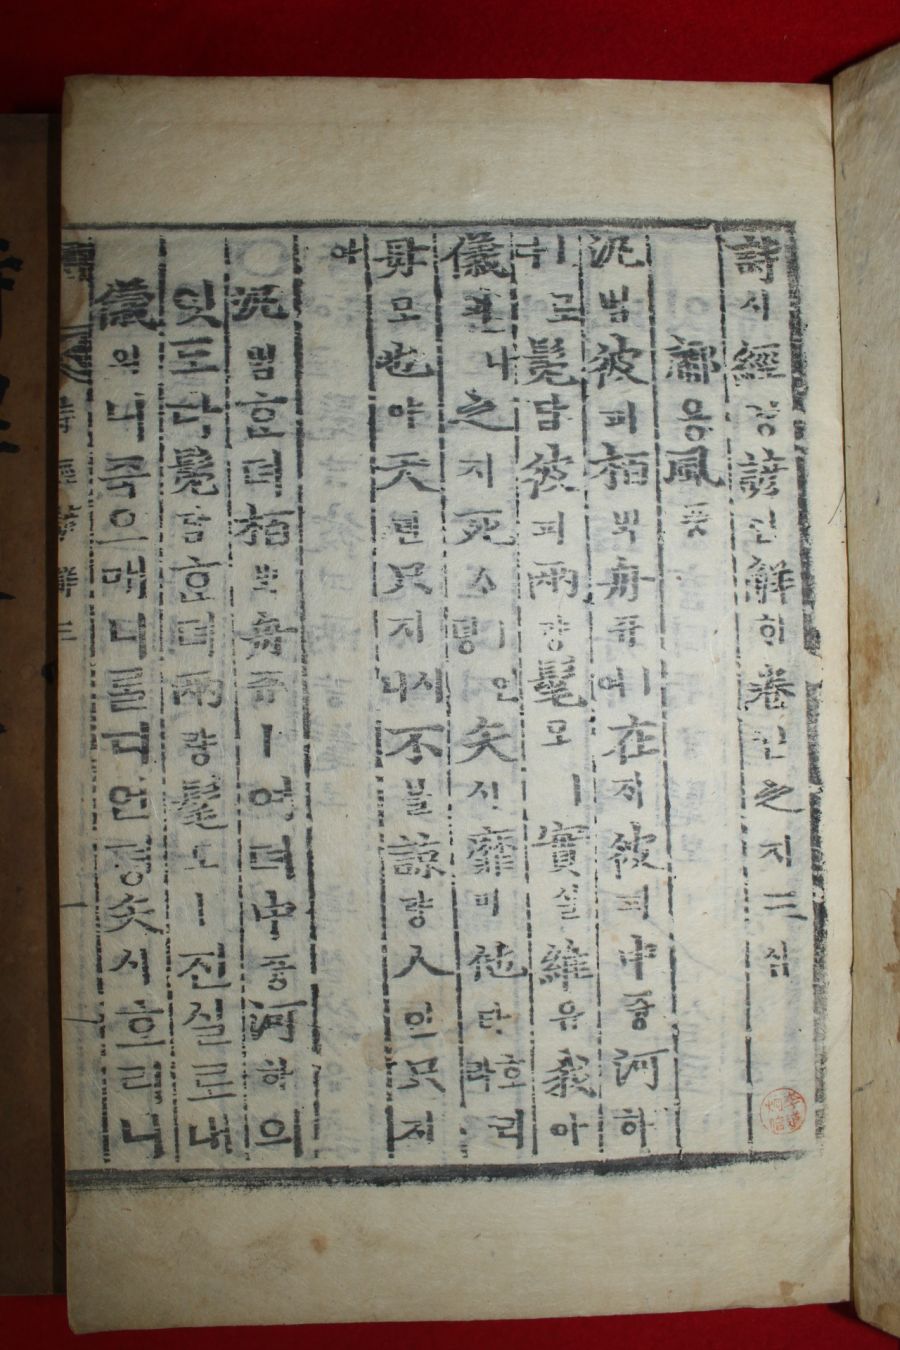 詩시經경諺언解ᄒᆡ卷권之지三삼
鄘용風풍
汎범彼피栢ᄇᆡᆨ舟쥬ㅣ여在ᄌᆡ彼피中듕河하
髧담彼피兩량髦모ㅣ實실維유我아
儀의니之지死ᄉᆞ矢시靡미他타
母모也야天텬只지不블諒량人인只지
야
○汎범ᄒᆞᆫ뎌栢ᄇᆡᆨ舟쥬ㅣ여뎌中듕河하의
잇도다髧담ᄒᆞᆫ뎌兩량髦모ㅣ진실로내
儀의니죽으매니를디언뎡矢시ᄒᆞ
詩經諺解三